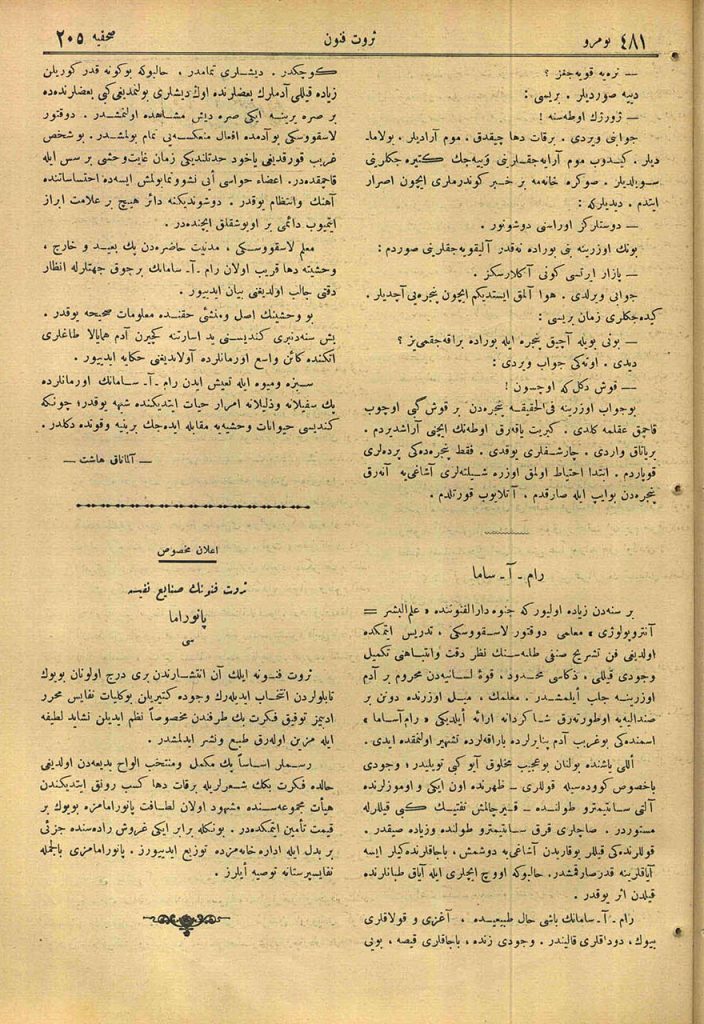 نومرو ٤٨١
ثروت فنون
صحیفه ٢٠٥
— نره‌یه قویه‌جغز ؟
دییه صوردیلر . بریسی :
— ژورژك اوطه‌سنه !
جوابنی ویردی . برقات دها چیقدق ، موم آرادیلر ، بولاما-
دیلر . كیدوب موم آرایه‌جقلرینی وییه‌جك كتیره جكلرینی
سویلدیلر . صوكره خانه‌مه بر خبر كوندرملری ایچون اصرار
ایتدم . دیدیلركه :
— دوستلركز اوراسنی دوشونور .
بونك اوزرینه بنی بوراده نه‌قدر آلیقویه‌جقلرینی صوردم :
— پازار ایرتسی كونی آكلارسكز .
جوابی ویرلدی . هوا آلمق ایستدیكم ایچون پنجره‌یی آچدیلر .
كیده‌جكلری زمان بریسی :
— بونی بویله آچیق پنجره ایله بوراده براقه‌جقمی‌یز ؟
دیدی . اوته‌كی جواب ویردی :
— قوش دكل كه اوچسون !
بوجواب اوزرینه فی‌الحقیقه پنجره‌دن بر قوش گبی اوچوب
قاچمق عقلمه كلدی . كبریت یاقه‌رق اوطه‌نك ایچنی آراشدیردم .
بریاتاق واردی . چارشفلری یوقدی . فقط پنجره‌ده‌كی پرده‌لری
قوپاردم . ابتدا احتیاط اولمق اوزره شیلته‌لری آشاغی‌یه آته‌رق
پنجره‌دن بوایپ ایله صارقدم . آتلایوب قورتلدم .
رام ـ آ ـ ساما
بر سنه‌دن زیاده اولیوركه جنوه دارالفنوننده « علم‌البشر =
آنتروپولوژی » معلمی دوقتور لاسقووسكی ، تدریس ایتمكده
اولدیغی فن تشریح صنفی طلبه‌سنك نظر دقت وانتباهنی تكمیل
وجودی قیللی ، ذكاسی محدود ، قوۀ لسانیه‌دن محروم بر آدم
اوزرینه جلب ایلمشدر . معلمك ، میل اوزرنده دونن بر
صندالیه‌یه اوطورته‌رق شاكردانه ارائه ایلدیكی « رام آساما »
اسمنده‌كی بوغریب آدم پنایرلرده یاراقه‌لرده تشهیر اولنمقده ایدی .
أللی یاشنده بولنان بوعجیب مخلوق آیو كبی تویلیدر ، وجودی
باخصوص كووده‌سیله قوللری ـ ظهرنده اون ایكی و اوموزلرنده
آلتی سانتیمترو طولنده ـ قیتیرجالمش تفتیك كبی قیللرله
مستوردر . صاچلری قرق سانتیمترو طولنده وزیاده صیقدر .
قوللرنده‌كی قیللر یوقاریدن آشاغی‌یه دوشمش ، باجاقلرنده‌كیلر ایسه
آیاقلرینه قدرصارقمشدر. حالبوكه اووچ ایچلری ایله آیاق طبانلرنده
قیلدن اثر یوقدر .
رام ـ آ ـ سامانك باشی حال طبیعیده ، آغزی و قولاقلری
بیوك ، دوداقلری قالیندر . وجودی زنده ، باجاقلری قیصه ، بویی
كوچكدر . دیشلری تمامدر ، حالبوكه بوكونه قدر كوریلن
زیاده قیللی آدملرك بعضلرنده اوڭ دیشلری بولنمدیغی كبی بعضلرنده‌ده
بر صره یرینه ایكی صره دیش مشاهده اولنمشدر . دوقتور
لاسقووسكی بوآدمده افعال منعكسه‌یی تمام بولمشدر . بو شخص
غریب قورقدیغی یاخود حدتلندیكی زمان غایت‌وحشی بر سس ایله
قاچمقده‌در. اعضاء حواسی أیی نشوونمابولمش ایسه‌ده احتساساتنده
آهنك وانتظام یوقدر . دوشوندیكنه دائر هیچ بر علامت ابراز
ایتمیوب دائمی بر اویوشقلق ایچنده‌در .
معلم لاسقووسكی ، مدنیت حاضره‌دن پك بعید و خارج ،
وحشیته دها قریب اولان رام ـ آ ـ سامانك برچوق جهتلرله انظار
دقتی جالب اولدیغنی بیان ایدیور .
بو وحشینك اصل ومنشئی حقنده معلومات صحیحه یوقدر .
یش سنه‌دنبری كندیسنی ید اسارتنه كچیرن آدم همالایا طاغلری
اتكنده كائن واسع اورمانلرده آولاندیغنی حكایه ایدییور .
سبزه ومیوه ایله تعیش ایدن رام ـ آ ـ سامانك اورمانلرده
پك سفیلانه وذلیلانه امرار حیات ایتدیكنده شبهه یوقدر؛ چونكه
كندیسی حیوانات وحشیه‌یه مقابله ایده‌جك بربنیه وقوتده دكلدر .
— آلماناق هاشت —
اعلان مخصوص
ثروت فنونك صنایع نفیسه
پانوراما
سی
ثروت فنونه ایلك آن انتشارندن بری درج اولونان بویوك
تابلولردن انتخاب ایدیله‌رك وجوده كتیریلن بوكلیات نفایس محرر
ادیبمز توفیق فكرت بك طرفندن مخصوصاً نظم ایدیلن نشاید لطیفه
ایله مزین اوله‌رق طبع ونشر ایدلمشدر .
رسملر اساساً پك مكمل ومنتخب الواح بدیعه‌دن اولدیغی
حالده فكرت بكك شعرلریله برقات دها كسب رونق ایتدیكندن
هیأت مجموعه‌سنده مشهود اولان لطافت پانورامامزه بویوك بر
قیمت تأمین ایتمكده‌در . بونكله برابر ایكی غروش راده‌سنده جزئی
بر بدل ایله اداره خانه‌مزده توزیع ایدییورز . پانورامامزی بالجمله
نفایسپرستانه توصیه أیلرز .